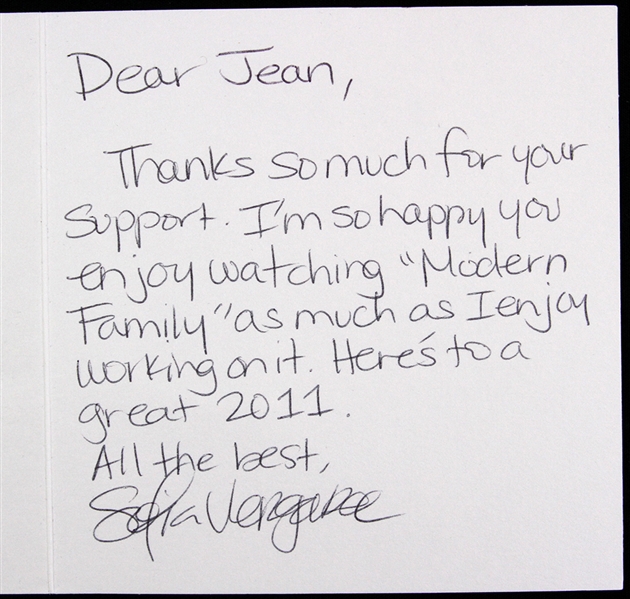 Dear Jean,
Thanks so much for your
support. I'm so happy you
enjoy watching "Modern
Family" as much as I enjoy
working on it. Here's to a
great 2011.
All the best,
Sofia Vergara